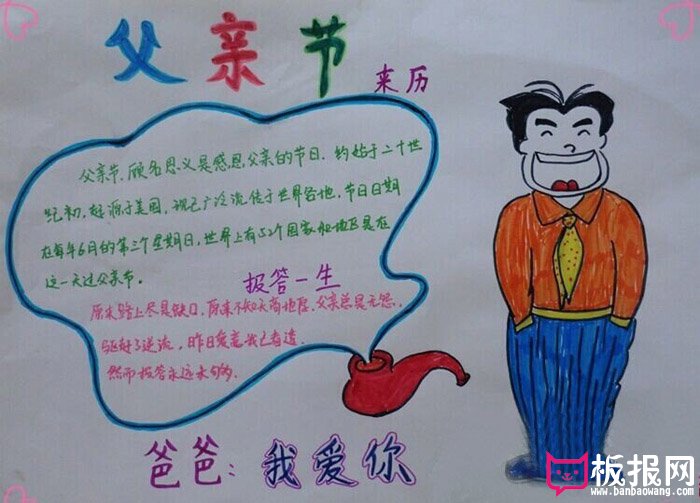 父亲节
来历
父亲节,顾名思义是感恩父亲的节日.约始于二十世
纪初,起源于美国,现已广泛流传于世界各地,节日日期
在每年6月的第三个星期日,世界上有52个国家和地区是在
这一天过父亲节。
报答一生
原来路上尽是缺口,原来不知天高地厚,父亲总是无怨,
驱赶了逆流,昨日爱意我已看透
然而报答永远未够的。
爸爸:我爱你
板报网
www.banbaowang.com